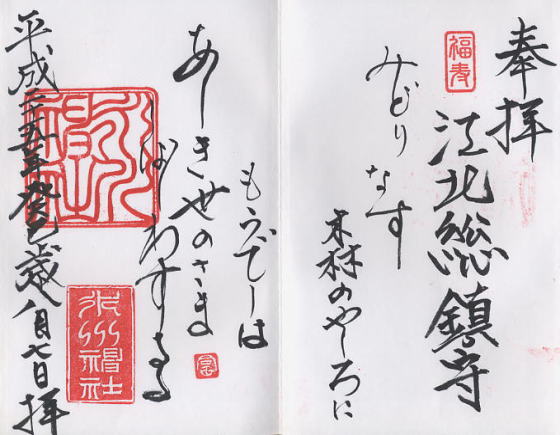 奉拝
福寿
江北総鎮守
みどりなす
森林のやしろに
もうでしは
あしき世のさま
しばしわするる
平成二十五年癸巳歳八月七日拝